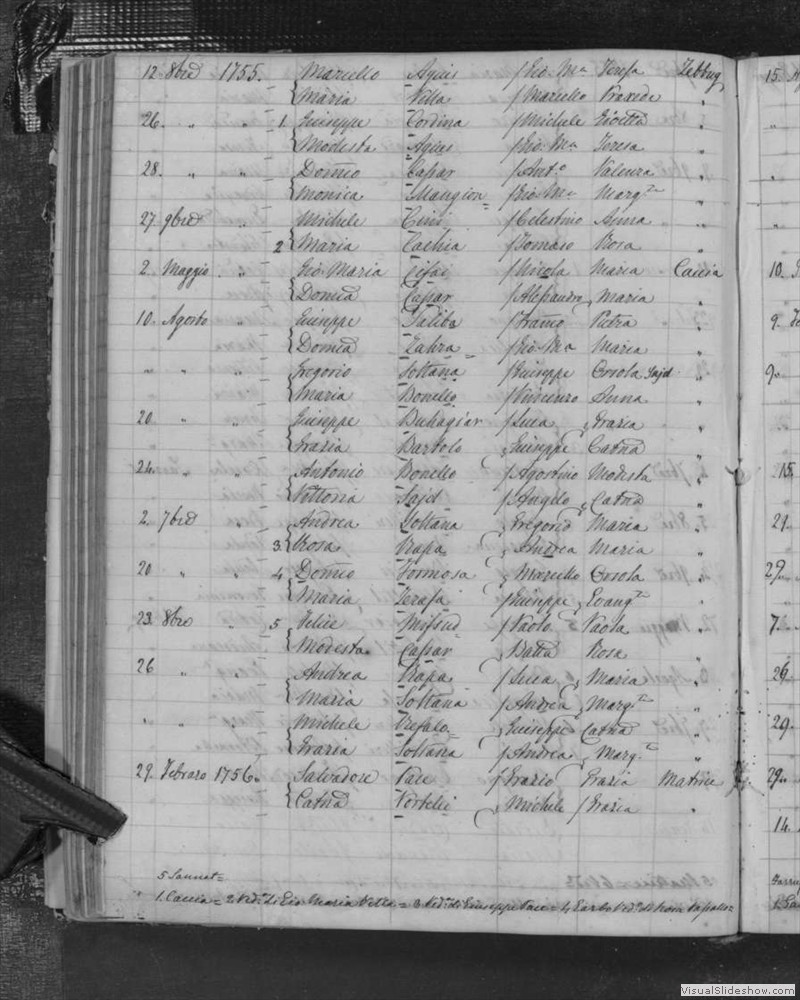 12 8bre 1755. Marcello Agius / Gio. Ma Teresa Zebbug
Maria Vella / Marcello Prassede "
26. " " 1 Giuseppe Cordina / Michele "
Modesta Agius / Gio Ma Teresa "
28. " " Domco Caſsar / Anto Valenza "
Monica Mangion / Gio Ma Marga "
27. 9bre " Michele Cini / Celestino Anna "
2 Maria Cachia / Tomaso Rosa "
2. Maggio " Gio Maria / Nicola Maria Caccia
Domca Caſsar / Aleſsandro Maria "
10. Agosto " Giuseppe Saliba / Franco Pietra "
Domca Zahra / Gio Ma Maria "
" " " Gregorio Soltana / Giuseppe Orsola Sajd "
Maria Bonello / Vincenzo Anna "
20 " " Giuseppe Buhagiar / Luca Grazia "
Grazia Bartolo Giuseppe Catna "
24. " " Antonio Bonello / Agostino Modesta "
Vittoria Sajd / Angelo Catna "
2. 7bre " Andrea Soltana Gregorio Maria "
3. Rosa Rapa Andrea Maria "
20 " " 4 Domco Formosa Marcello Orsola "
Maria Zerafa / Giuseppe Evanga "
23. 8bre " 5 Felice Mifsud / Paolo Paola "
Modesta Caſsar Batta Rosa "
26 " " Andrea Rapa / Luca Maria "
Maria Soltana / Andrea Marga "
" " " Michele Refalo Giuseppe Catna "
Grazia Soltana / Andrea Marga "
29. Febraro 1756. Salvadore Pace / Grazio Grazia Matrice
Catna Portelli Michele / Grazia "
5 Sannat=
1. Caccia = 2 Veda di Gio Maria Vella = 3 Veda di Giuseppe Pace = 4 Veda di
15.
"
"
"
10.
9.
9.
"
15.
21.
29.
7.
26.
29.
29.
14.